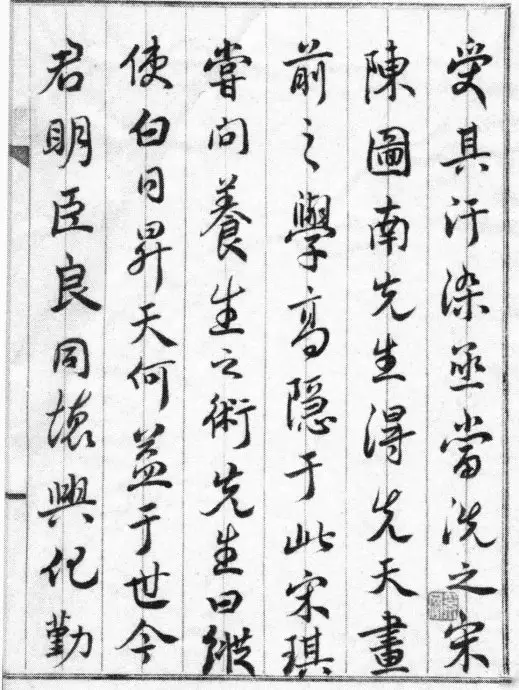 受其汙染亟當洗之宋
陳圖南先生得先天畫
前之學高隱于此宋琪
嘗問養生之術先生曰縱
使白日昇天何益于世今
君明臣良同德興化勤